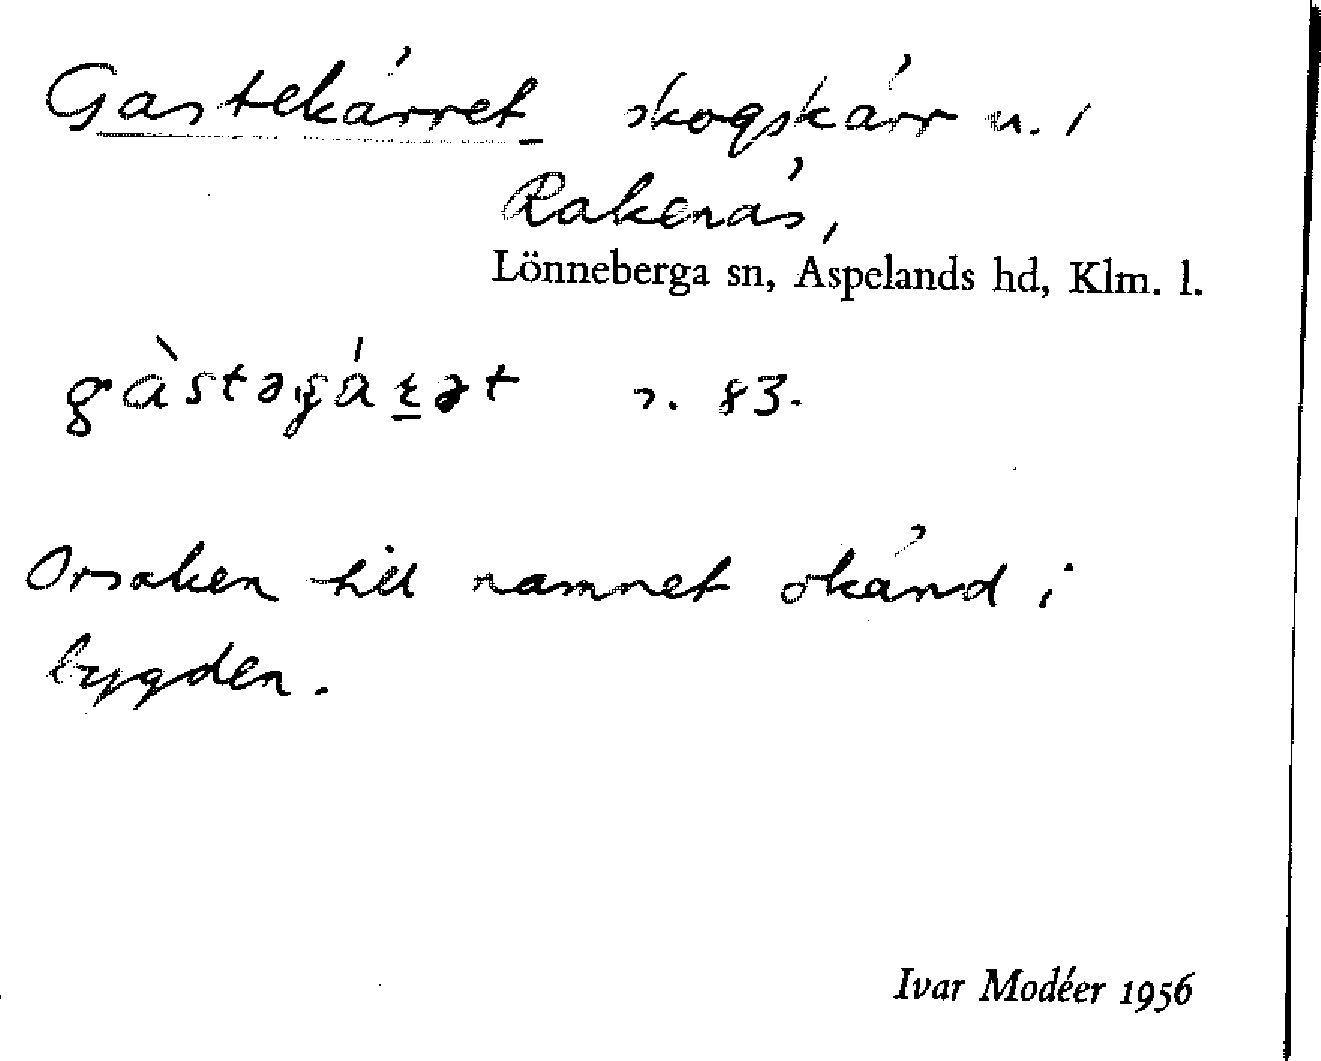 Gastekärret skogskärr n. i
Rakenäs,
Lönneberga sn, Aspelands hd, Klm. l.
83.
Orsaken till namnet okänd i
bygden.
Ivar Modéer 1956